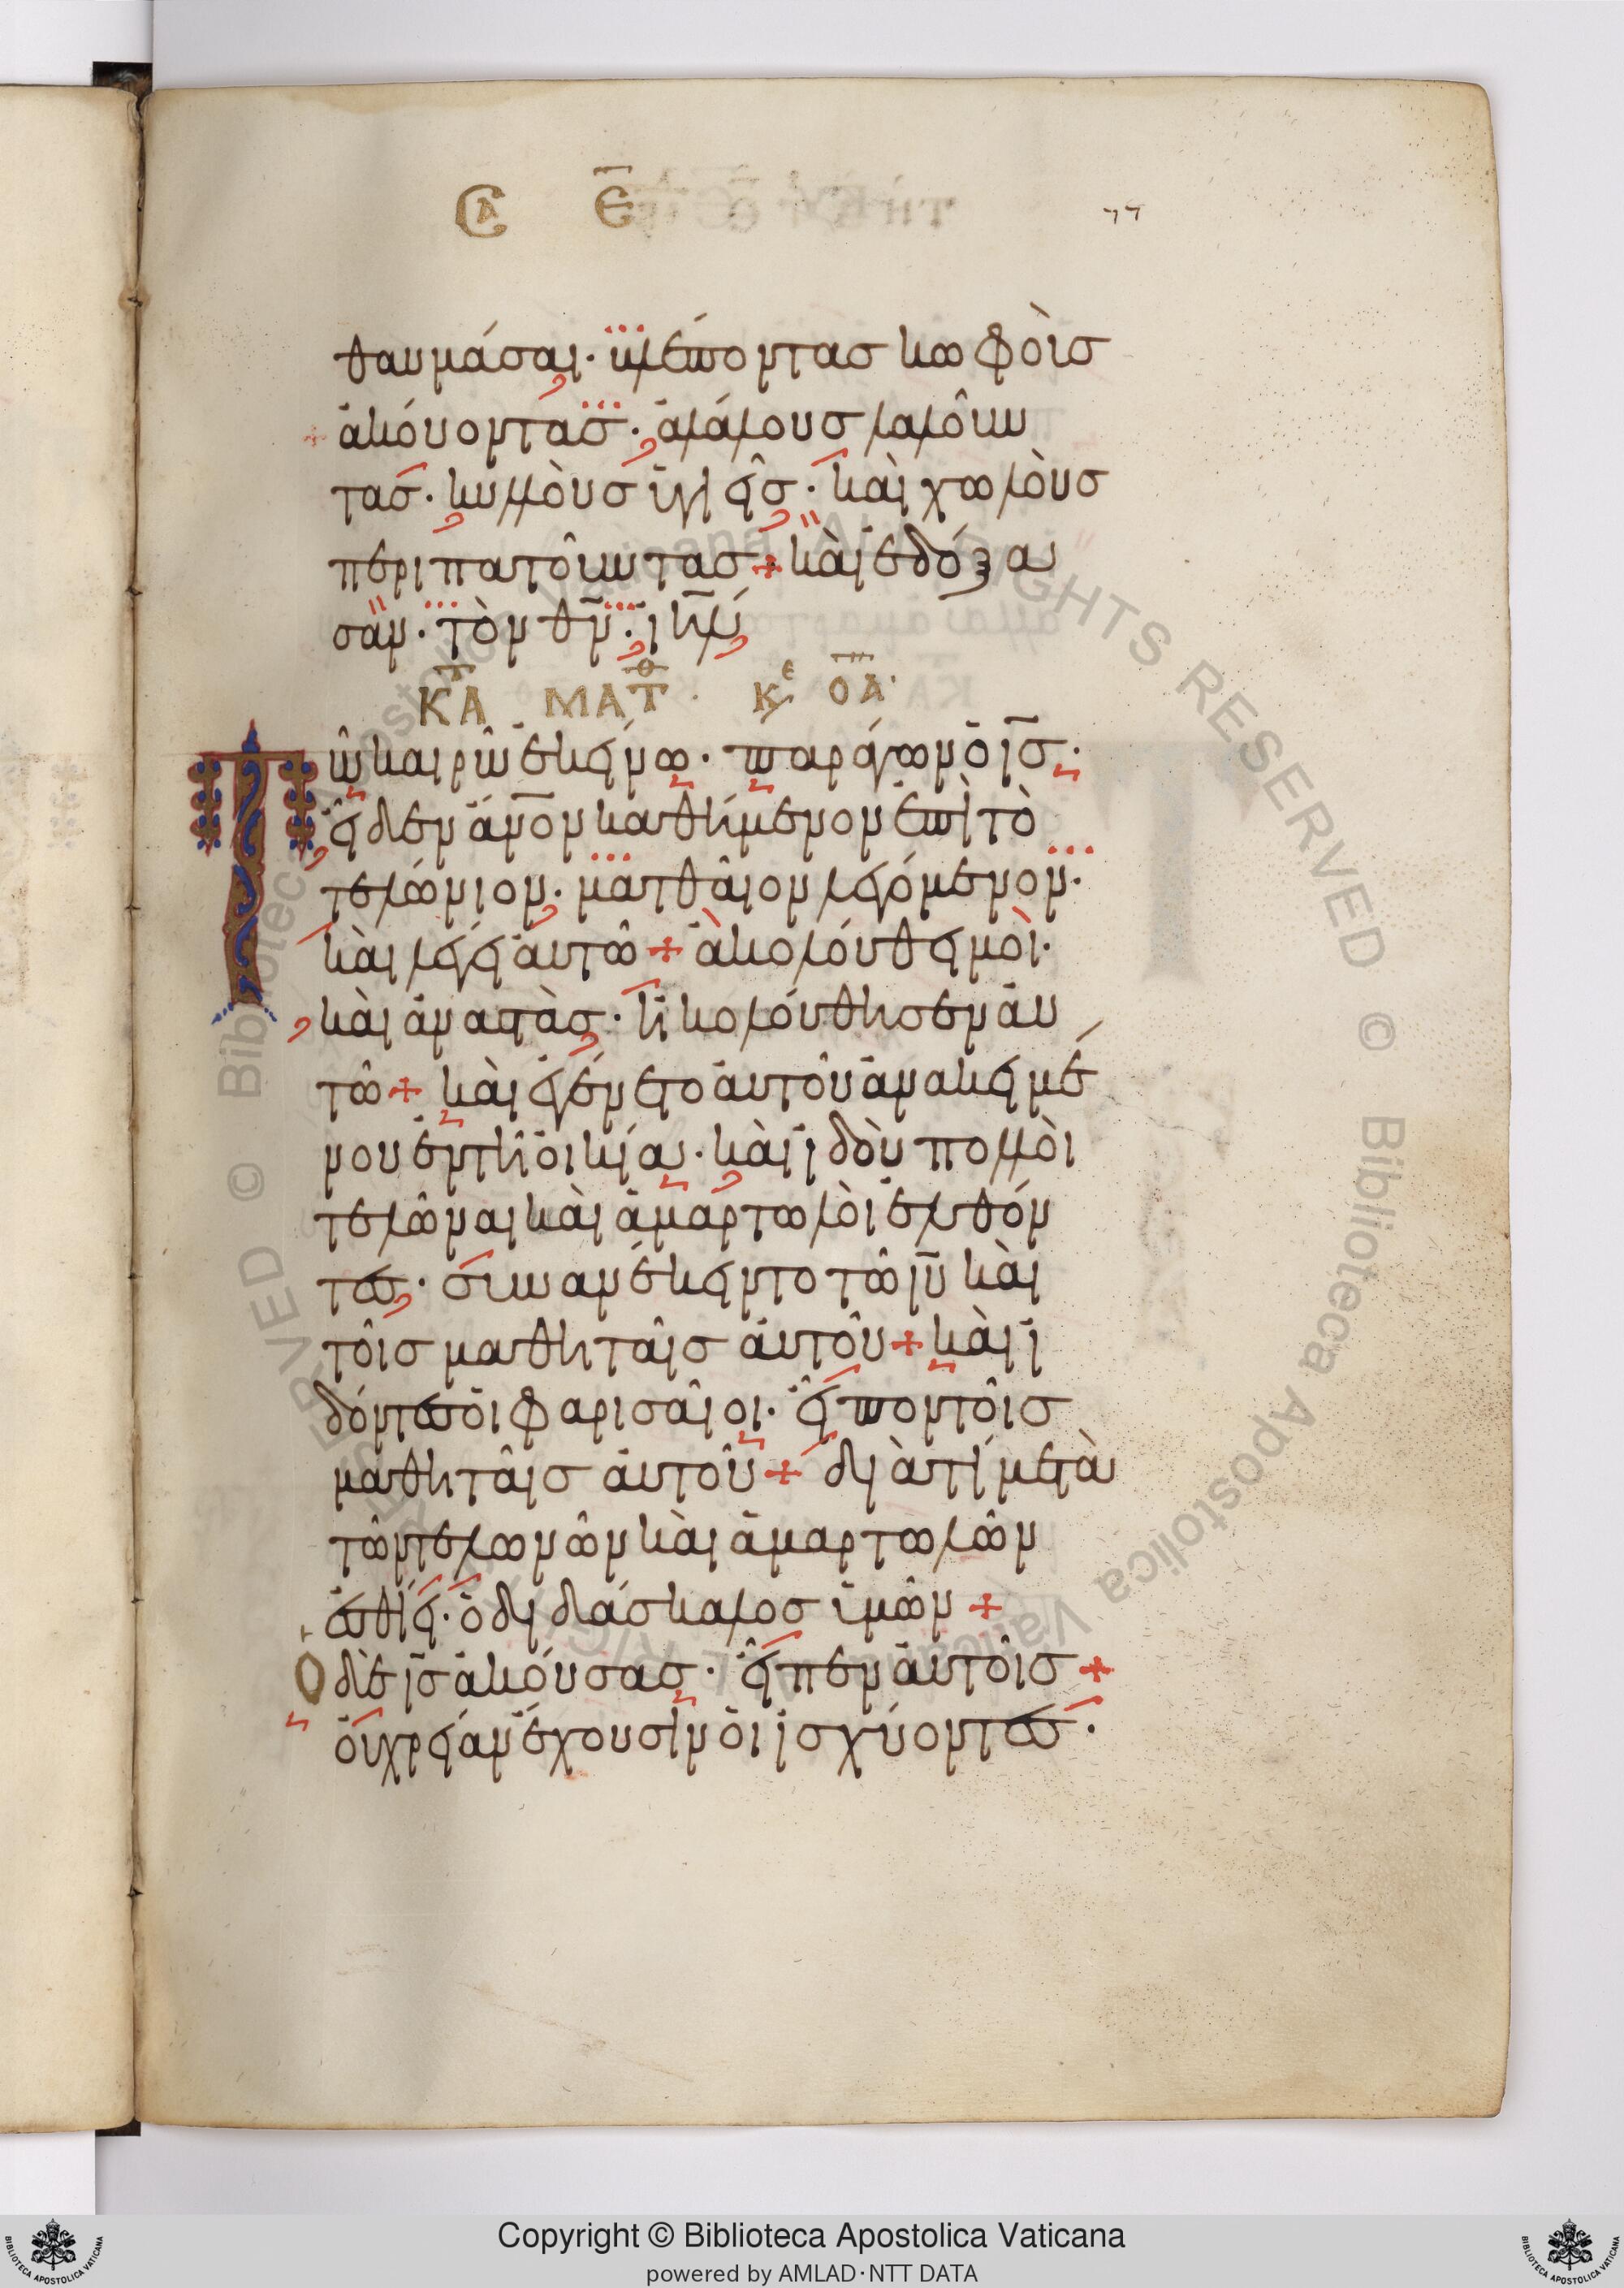 ϹΑ Ε̅
77
θαυμάσαι· βλέποντασ κωφοὶσ
ἀκούοντασ· ἀλάλουσ λαλοῦν
τασ· κυλλοὺσ ὑγιεῖσ· καὶ χωλοὺσ
περιπατοῦντασ + καὶ ἐδόξα
σαν· τὸν θ̅ν̅· ι̅η̅λ̅
ΚΑΤ ΜΑΤΘ· ΚΕ ΟΑ·
Τῶ καιρῶ ἐκείνω· παράγων ὁ ι̅σ̅·
εἶδεν ἄ̅ν̅ο̅ν καθήμενον ἐπὶ τὸ
τελώνιον· ματθαῖον λεγόμενον·
καὶ λέγει αὐτῶ + ἀκολούθει μοὶ·
καὶ ἀναστὰσ· ἠκολούθησεν αὐ
τῶ + καὶ ἐγένετο αὐτοῦ ἀνακειμέ
νου ἐν τῆ οἰκία· καὶ ἰδοὺ πολλοὶ
τελῶναι καὶ ἁμαρτωλοὶ ἐλθόν
τεσ· συνανέκειντο τῶ ι̅υ̅ καὶ
τοῖσ μαθηταῖσ αὐτοῦ + καὶ ἰ
δόντεσ οἱ φαρισαῖοι· εἶπον τοῖσ
μαθηταῖσ αὐτοῦ + διὰ τί μετὰ
τῶν τελωνῶν καὶ ἁμαρτωλῶν
ἐσθίει· ὁ διδάσκαλοσ ὑμῶν +
Ὁ δὲ ι̅σ̅ ἀκούσασ· εἶπεν αὐτοῖσ +
οὐ χρείαν ἔχουσιν οἱ ἰσχύοντεσ·
© Biblioteca Apostolica Vaticana ALL RIGHTS RESERVED © Biblioteca Apostolica Vaticana ALL RIGHTS RESERVED
Copyright © Biblioteca Apostolica Vaticana
powered by AMLAD·NTT DATA
BIBLIOTECA APOSTOLICA VATICANA
BIBLIOTECA APOSTOLICA VATICANA